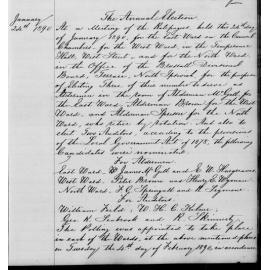 The Annual Election
January
24th 1890
At a Meeting of the Ratepayers held the 24th day
of January 1890, for the East Ward in the Council
Chambers, for the West Ward, in the Temperance
Hall, West Street, and for the North Ward,
in the Office of the Blackall Divisional
Board, Terrace, North for the purpose
of Electing Three of their number to serve as
Aldermen in the room of Alderman McGill for
the East Ward, Alderman Brown for the West
Ward, and Alderman for the North
Ward, who retire by rotation, And also to
elect Two Auditors, according to the provisions
of the Local Government Act of 1878, the following
Candidates were nominated
For Aldermen
East Ward, W. James McGill and E. W. Hargreaves
West Ward, Peter Brown and Henry E.
North Ward, F. G. Springall and R. Seymour
For Auditors
William Field, W. H. C.
Geo. R. and R. Skinner
The Polling was appointed to take place
in each of the Wards, at the above mentioned places
on Tuesday the 4th day of February 1890, in accordance